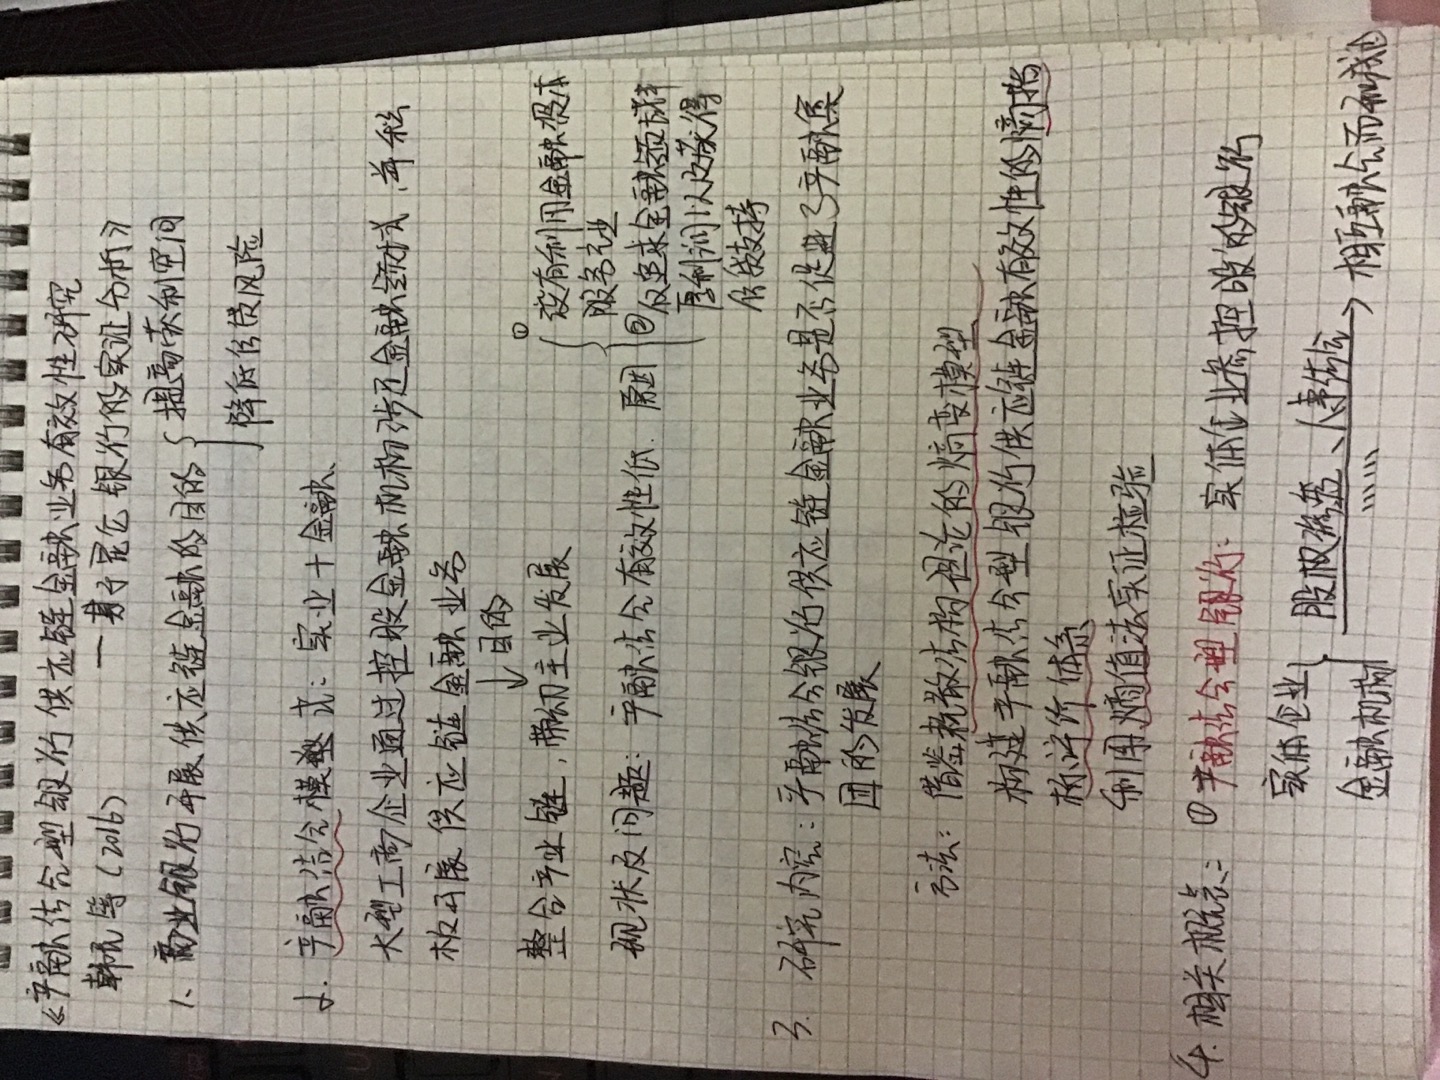 《产融结合型银行供应链金融业务有效性研究
——基于昆仑银行的实证分析》
韩 等(2016)
1、商业银行开展供应链金融的目的 { 提高获利空间
降低信贷风险
2. 产融结合模式:实业+金融
大型工商企业通过控股金融机构涉足金融领域,并积
极开展供应链金融业务
↓目的
整合产业链,带动主业发展
现状及问题:产融结合有效性低. 原因 {
① 没有利用金融资本
服务主业
② 仅追求金融领域样
厚利润以及获得
信贷支持
3. 研究内容:产融结合银行供应链金融业务是否促进了产融集
团的发展
方法:借鉴耗散结构理论的熵变模型
构建产融结合型银行供应链金融有效性的熵指
标评价体系
利用熵值法实证检验
4. 相关概念: ①产融结合型银行:实体企业参控股的银行
实体企业
金融机构
} 股权参与、人事结合 → 相互融合而成
……